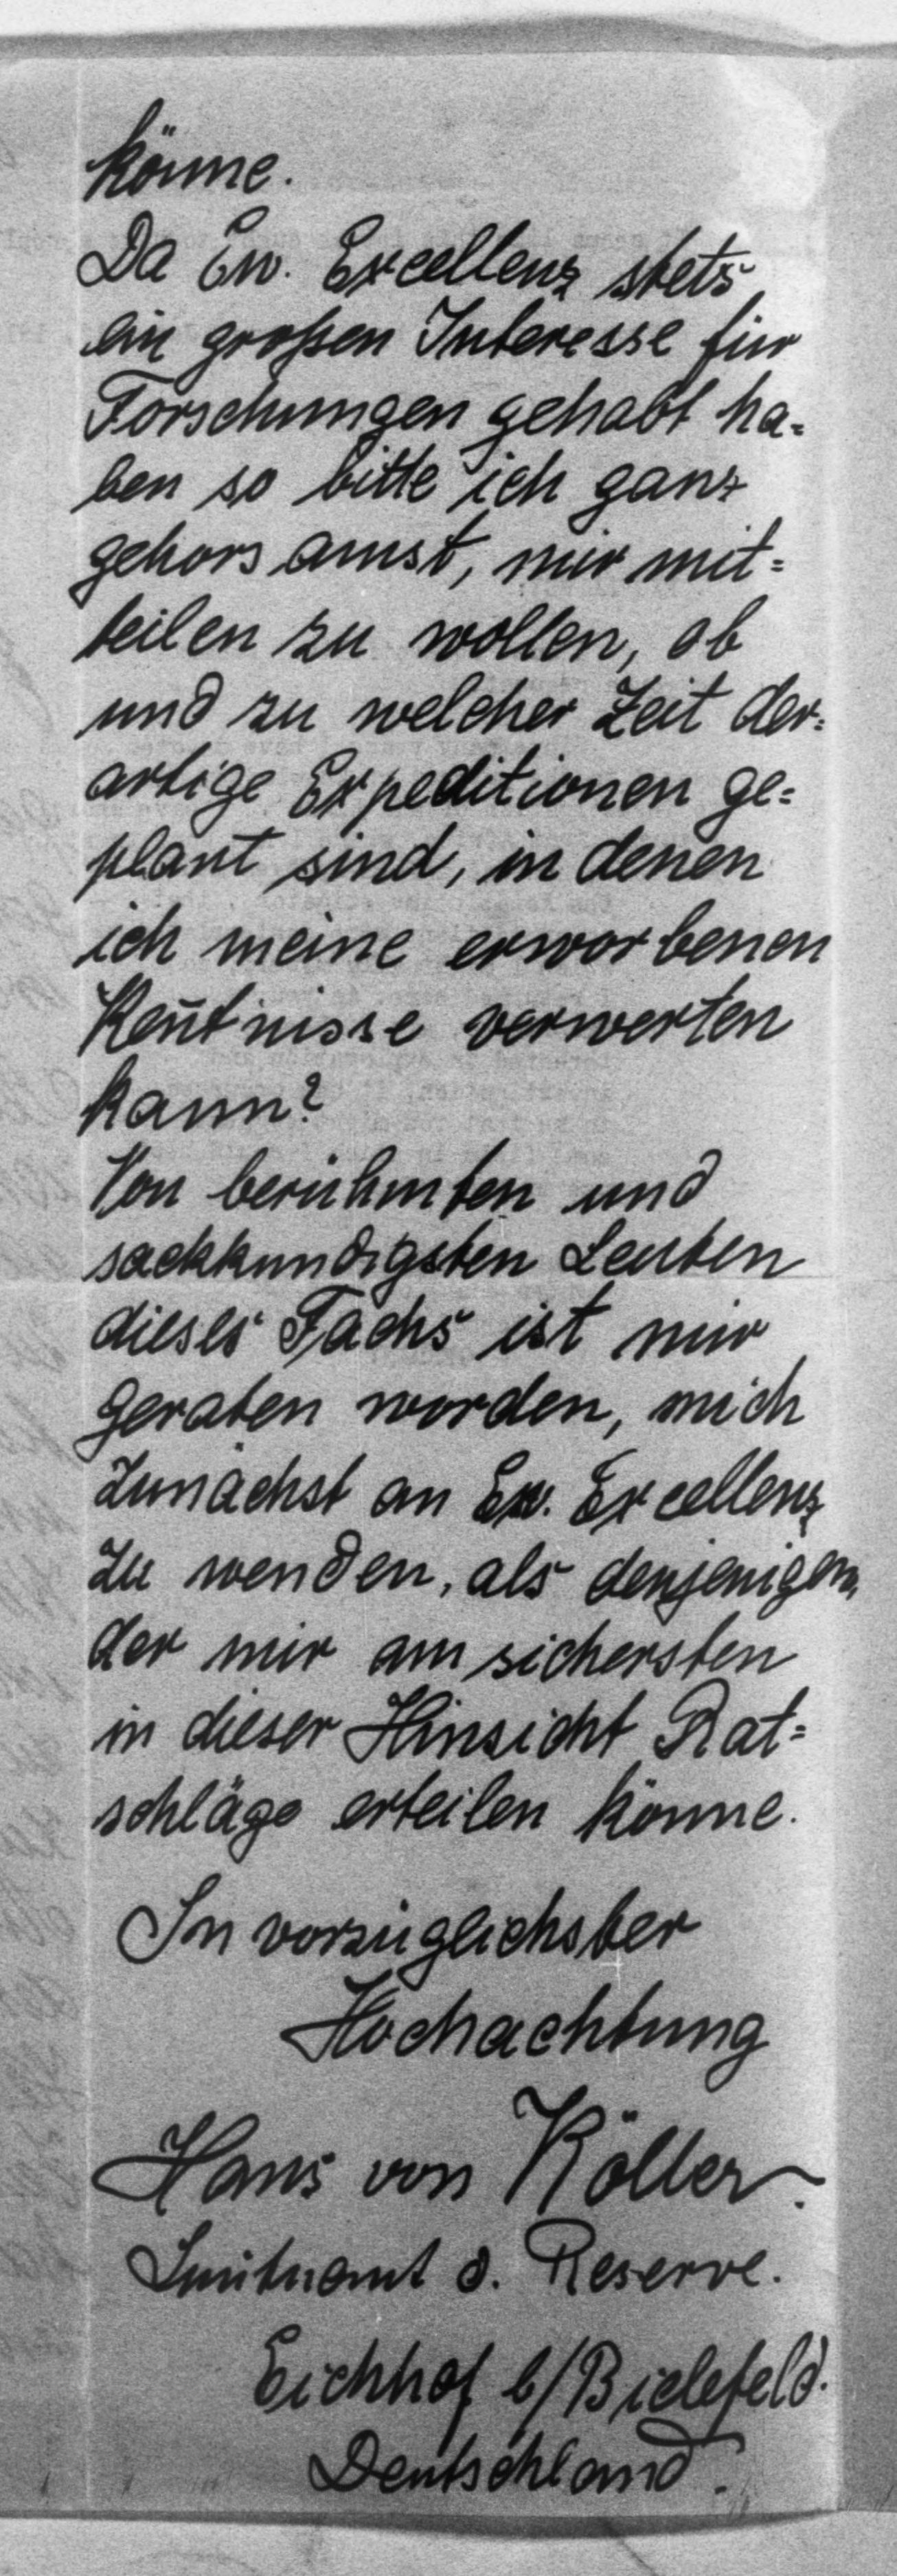 könne.
Da Ew. Excellenz stets
ein großen Interesse für
Forschungen gehabt ha=
ben so bitte ich ganz
gehorsamst, mir mit=
teilen zu wollen, ob
und zu welcher Zeit der=
artige Expeditionen ge=
plant sind, in denen
ich meine erworbenen
Ken̄tnisse verwerten
kann?
Von berühmten und
sackkundigsten Leuten
dieses Fachs ist mir
geraten worden, mich
zunächst an Ew. Excellenz
zu wenden, als denjenigen,
der mir am sichersten
in dieser Hinsicht Rat=
schläge erteilen könne.
In vorzüglichster
Hochachtung
Hans von Köller.
Leutnant d. Reserve.
Eichhof b/Bielefeld.
Deutschland.